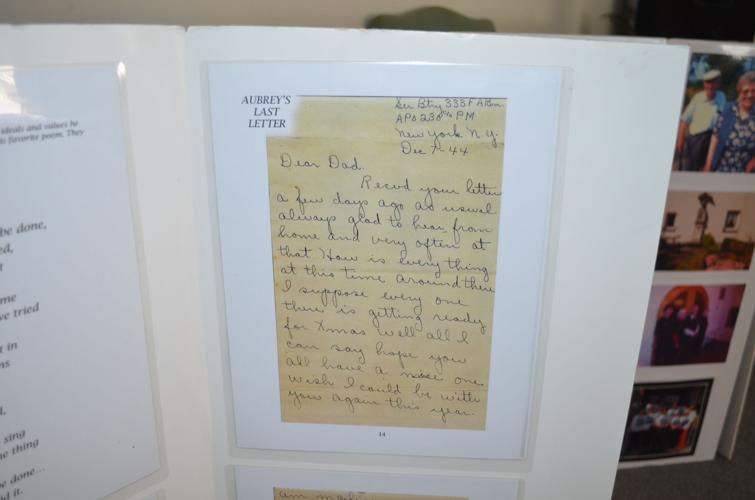 ideals and values he
is favorite poem. They
be done,
me
ve tried
t in
sing
e thing
e done...
d it.
AUBREY'S
LAST
LETTER
Ser Btry 333 F A Bn.
APO 230 % PM
New York N.Y.
Dec 7-44
Dear Dad.
Recvd your letter
a few days ago as usual
always glad to hear from
home and very often at
that How is every thing
at this time around there
I suppose every one
there is getting ready
for Xmas Well all I
can say hope you
all have a nice one
Wish I could be with
you again this year.
14
am